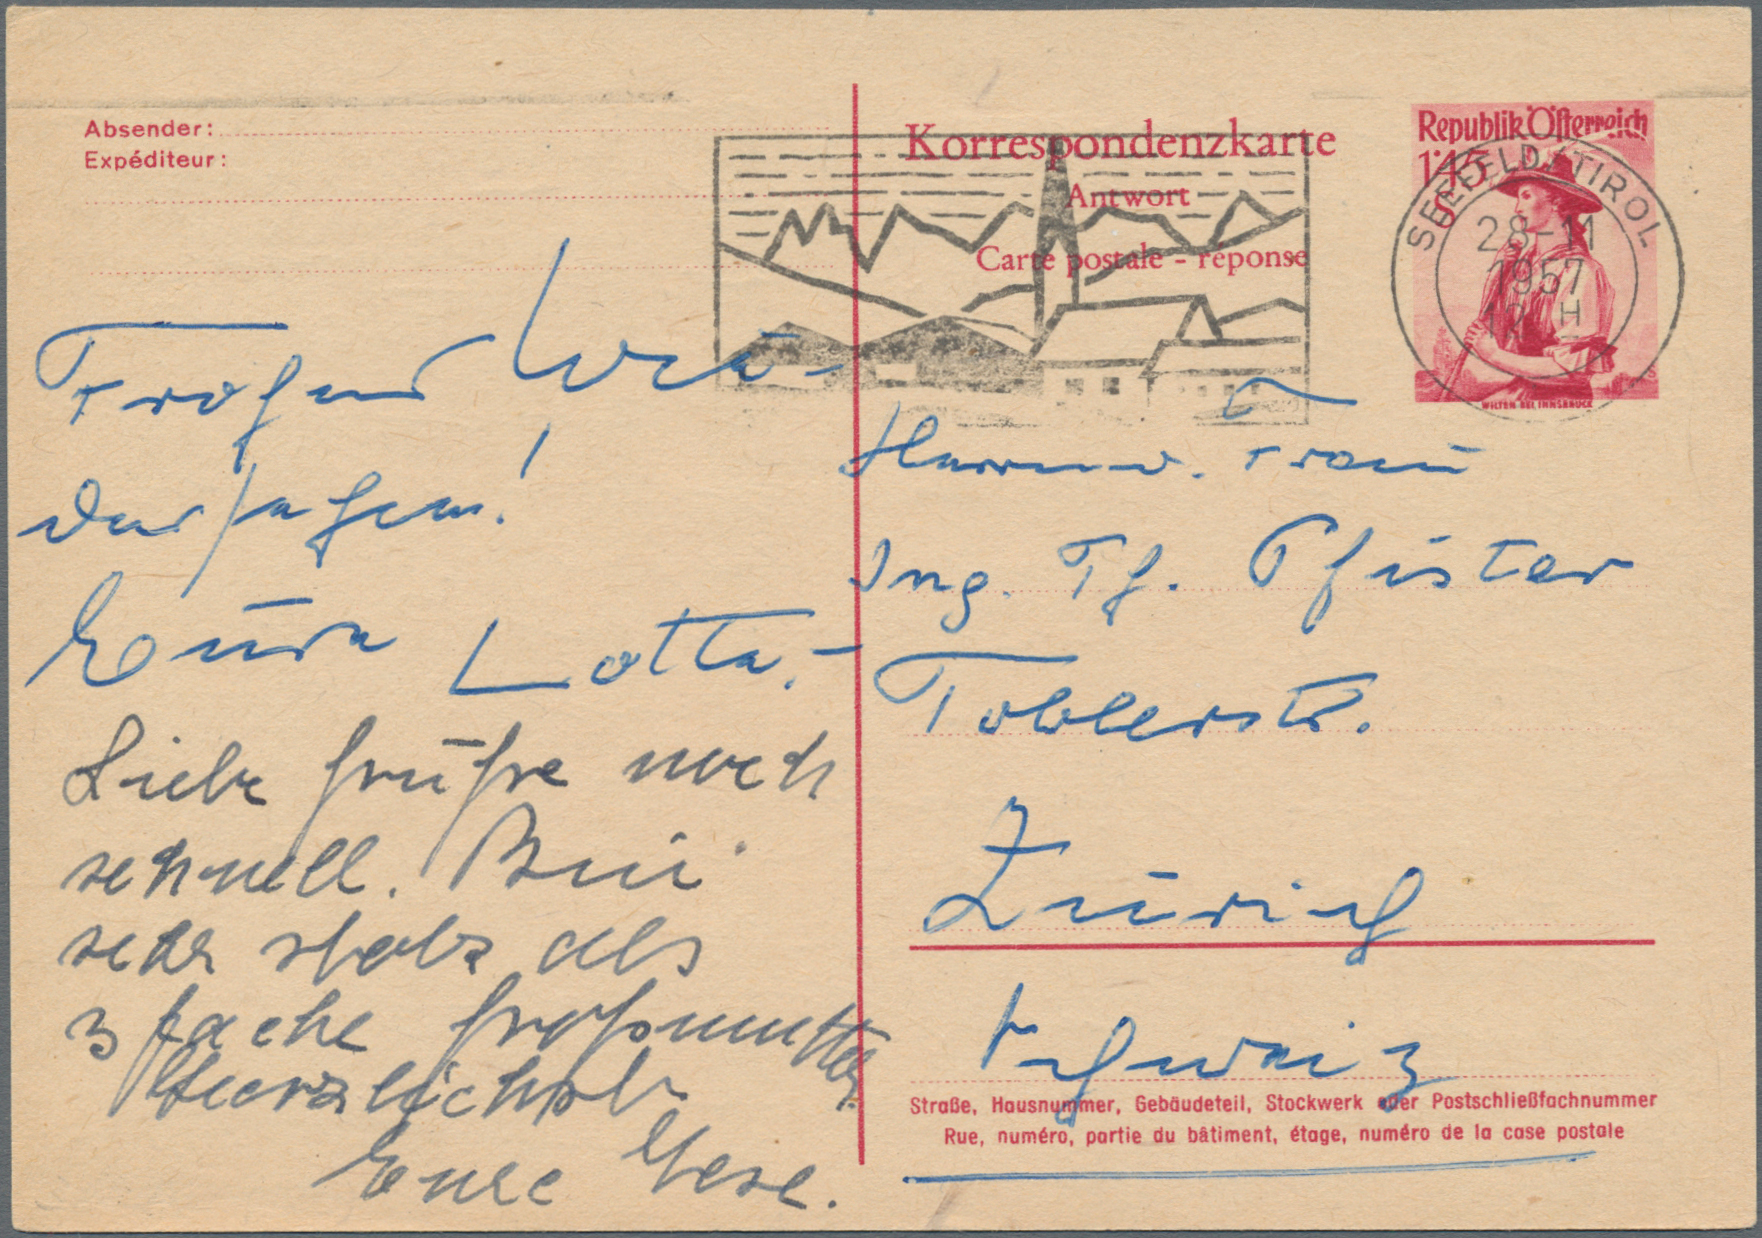 Absender:
Expéditeur:
Korrespondenzkarte
Antwort
Carte postale - réponse
Republik Österreich
1·45
S
WILTEN BEI INNSBRUCK
SEEFELD / TIROL
28-11
1957
H
Frohes Wie-
dersehen!
Eure Lotte.-
Liebe Grüße noch
schnell. Bin
sehr stolz als
3 fache Großmutter.
Herzlichst
Eure
Herrn u. Frau
Ing. Th. Pfister
Toblerstr.
Zürich
Schweiz
Straße, Hausnummer, Gebäudeteil, Stockwerk oder Postschließfachnummer
Rue, numéro, partie du bâtiment, étage, numéro de la case postale